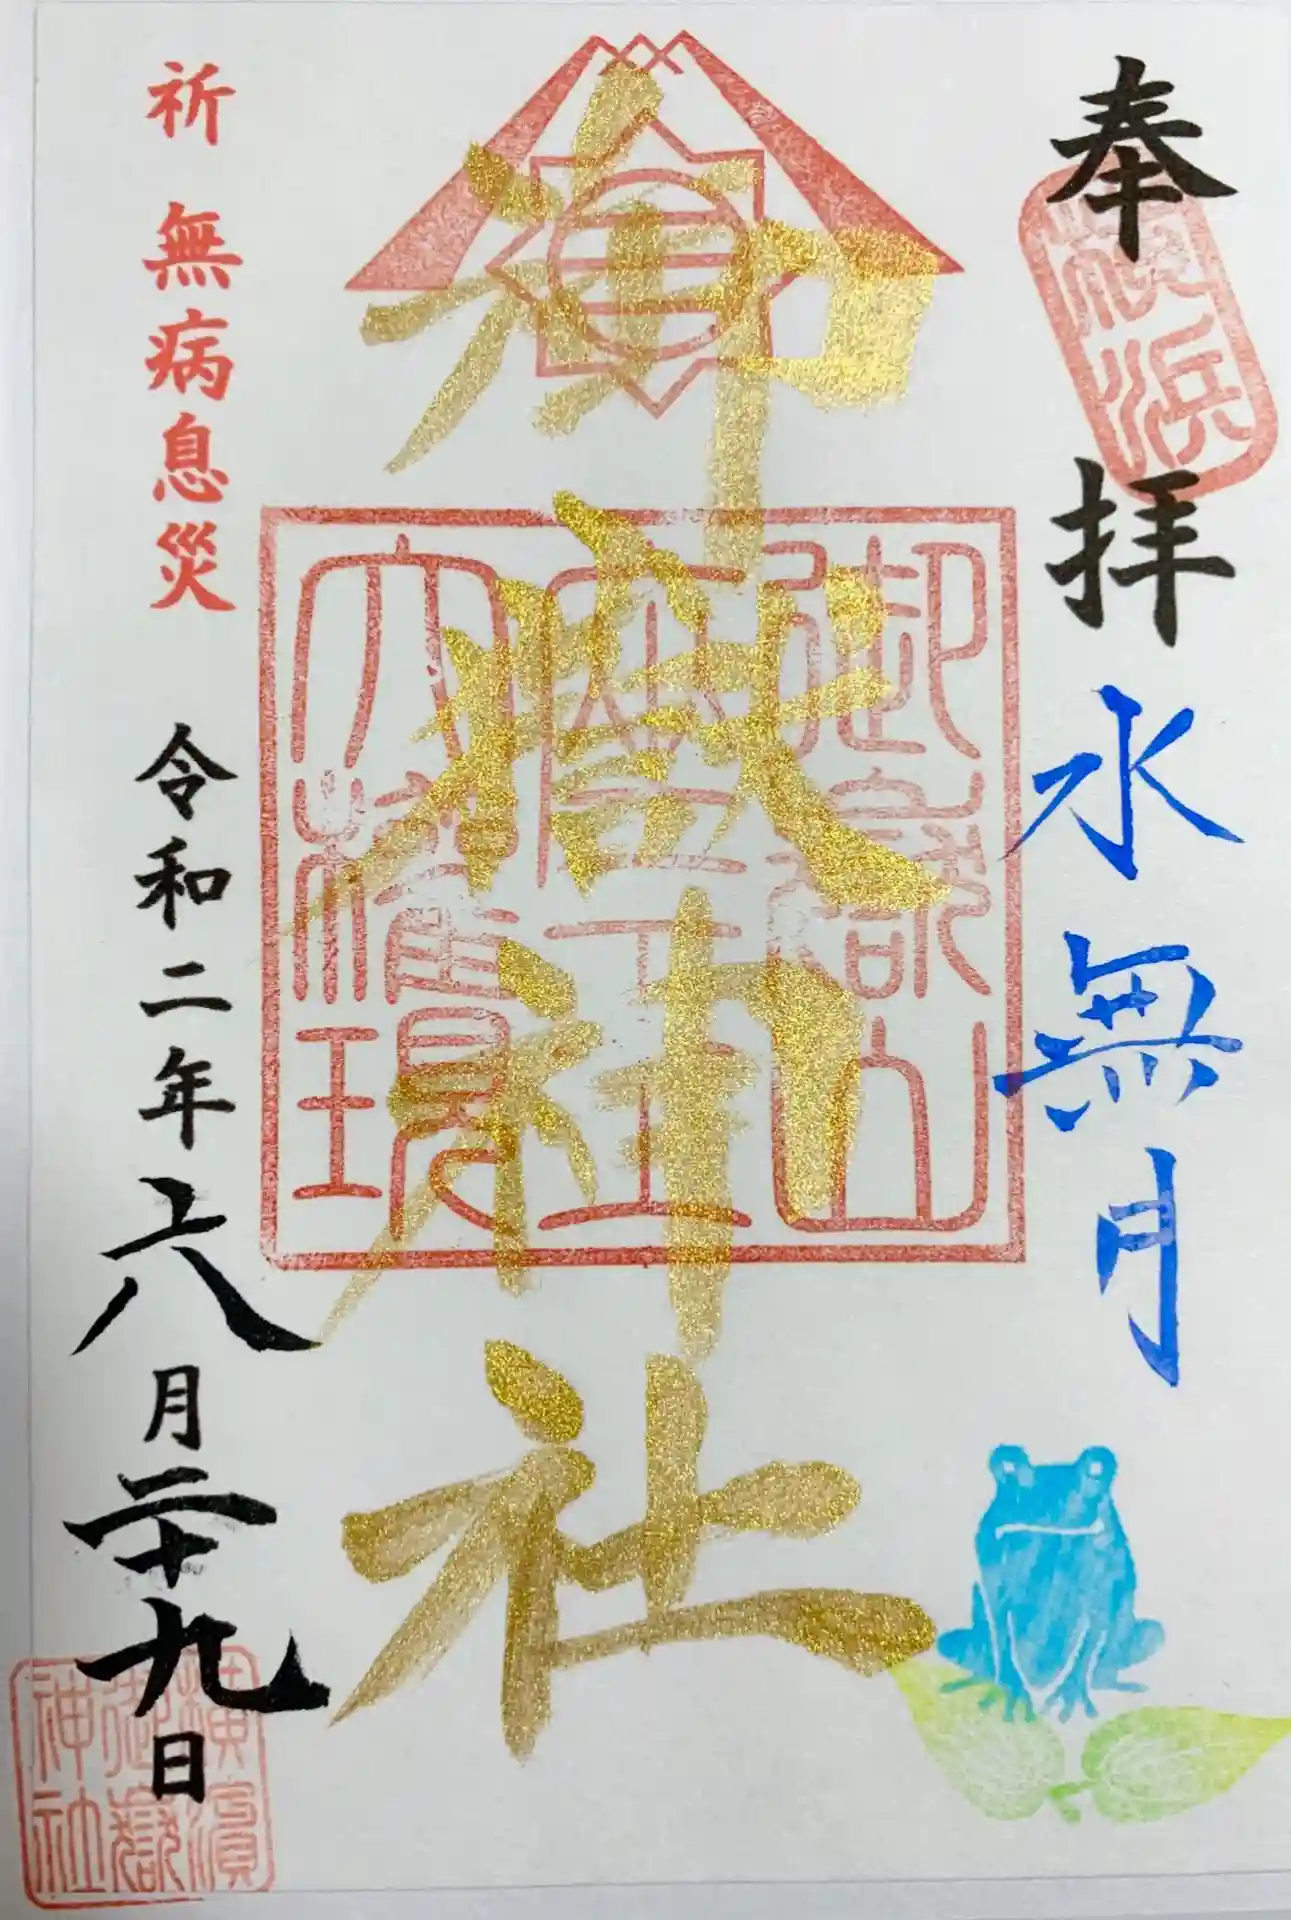 奉拝
水無月
御嶽神社
御嶽山
座王
大権現
祈 無病息災
令和二年六月二十九日
横濱
御嶽
神社